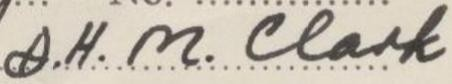 No.
D.H.M. Clark